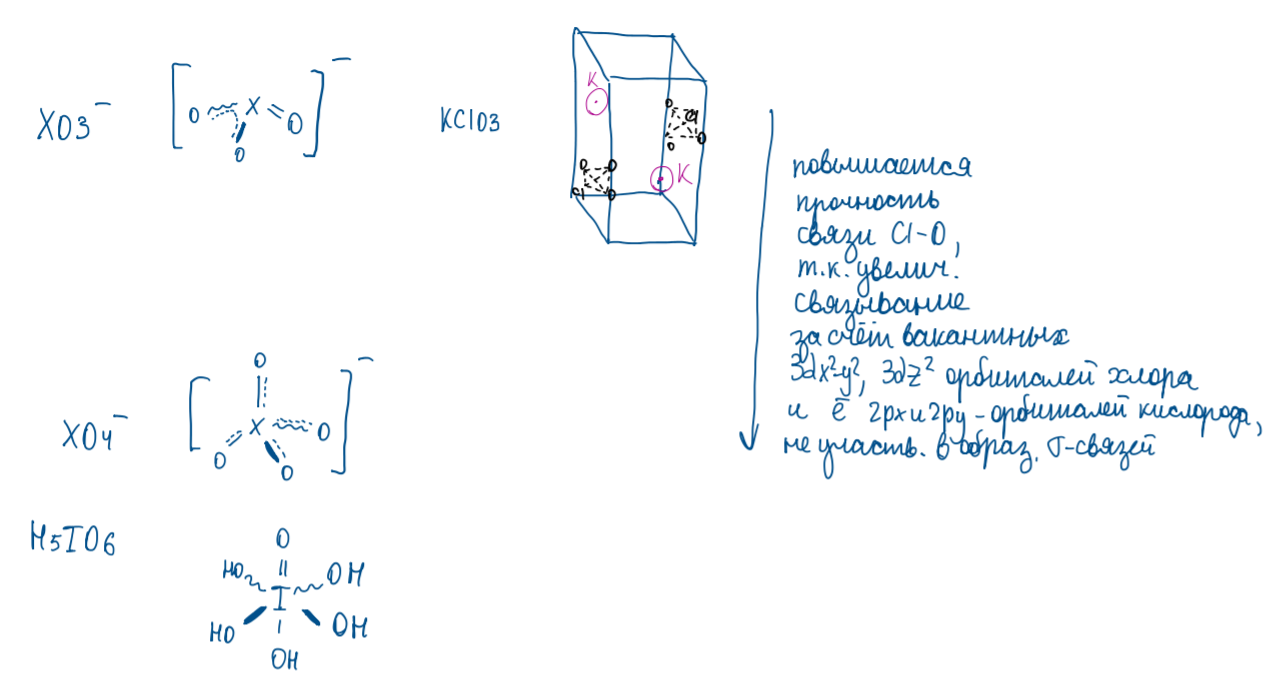 XO3⁻
[O X O O]⁻
KClO3
K
O Cl O O
O O Cl O
K
повышается
прочность
связи Cl-O,
т.к. увелич.
связывание
за счёт вакантных
3dx²-y², 3dz² орбиталей хлора
и ē 2px и 2py - орбиталей кислорода,
не участв. в образ. σ-связей
XO4⁻
[O X O O O]⁻
H5IO6
O
HO OH
I
HO OH
OH